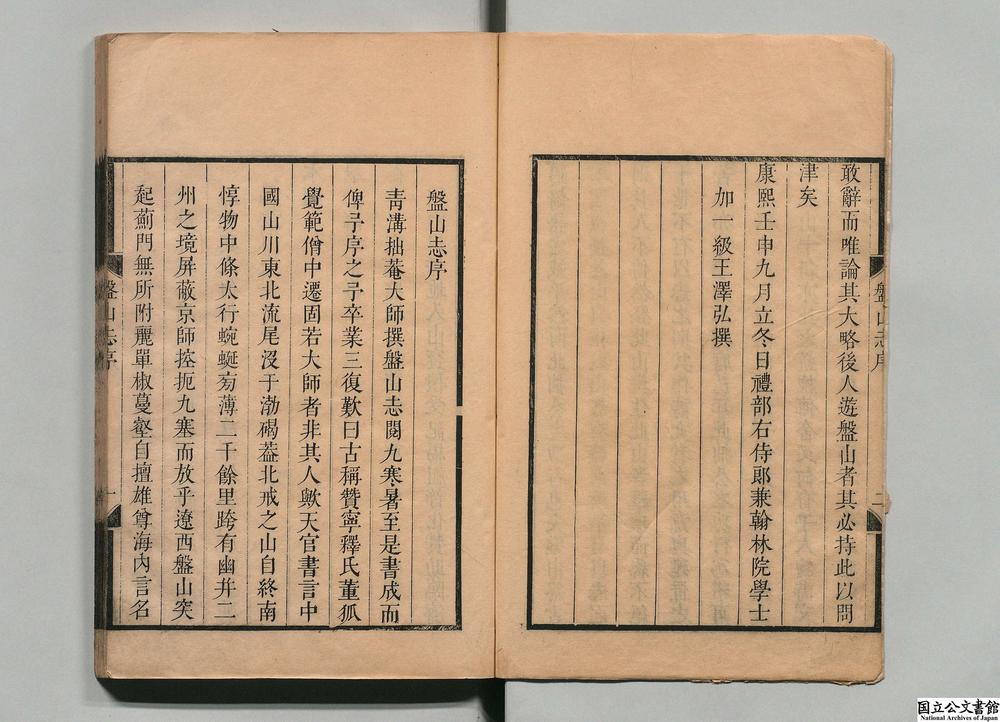 敢辭而唯論其大略後人遊盤山者其必持此以問
津矣
康熙壬申九月立冬日禮部右侍郎兼翰林院學士
加一級王澤弘撰
盤山志序
二
盤山志序
青溝拙菴大師撰盤山志閱九寒暑至是書成而
俾予序之予卒業三復歎曰古稱贊寧釋氏董狐
覺範僧中遷固若大師者非其人歟天官書言中
國山川東北流尾沒于渤碣葢北戒之山自終南
惇物中條太行蜿蜒旁薄二千餘里跨有幽并二
州之境屏蔽京師控扼九塞而放乎遼西盤山突
起薊門無所附麗單椒蔓壑自擅雄尊海內言名
盤山志序
一
国立公文書館
National Archives of Japan